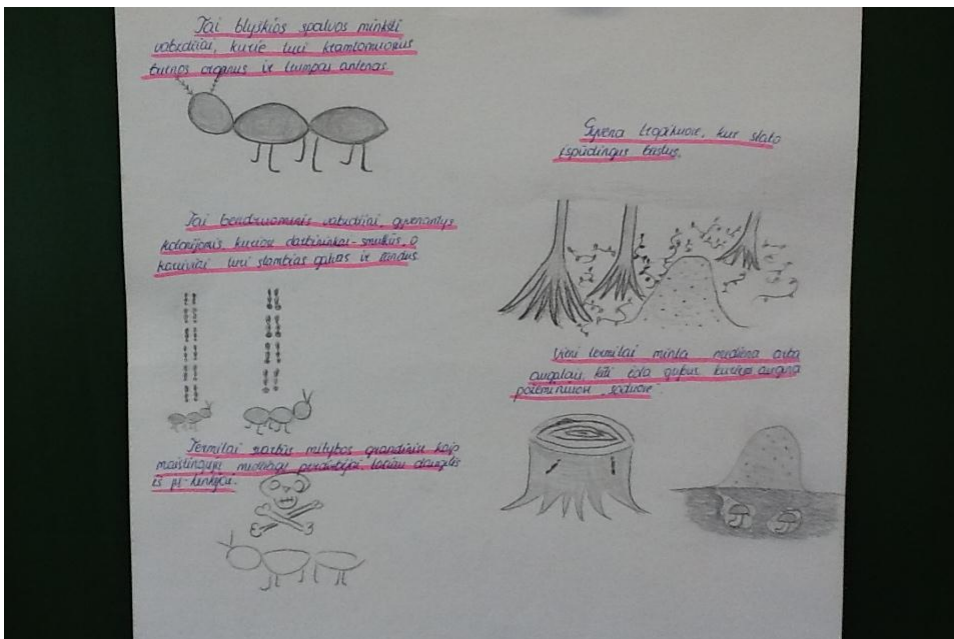 Tai blyškios spalvos minkšti
vabzdžiai, kurie turi kramtomuosius
burnos organus ir trumpas antenas.
Tai bendruominis vabzdžiai, gyvenantys
kolonijomis, kuriose darbininkai-smulkūs, o
kareiviai turi stambias galvas ir žandus.
Termitai svarbūs mitybos grandinėje kaip
maistingųjų medžiagų perdirbėjai tačiau daugelis
iš jų-kenkėjai.
Gyvena tropikuose, kur stato
įspūdingus būstus.
Vieni termitai minta mediena arba
augalais, kiti ėda grybus kuriuos augina
požeminiuose soduose.